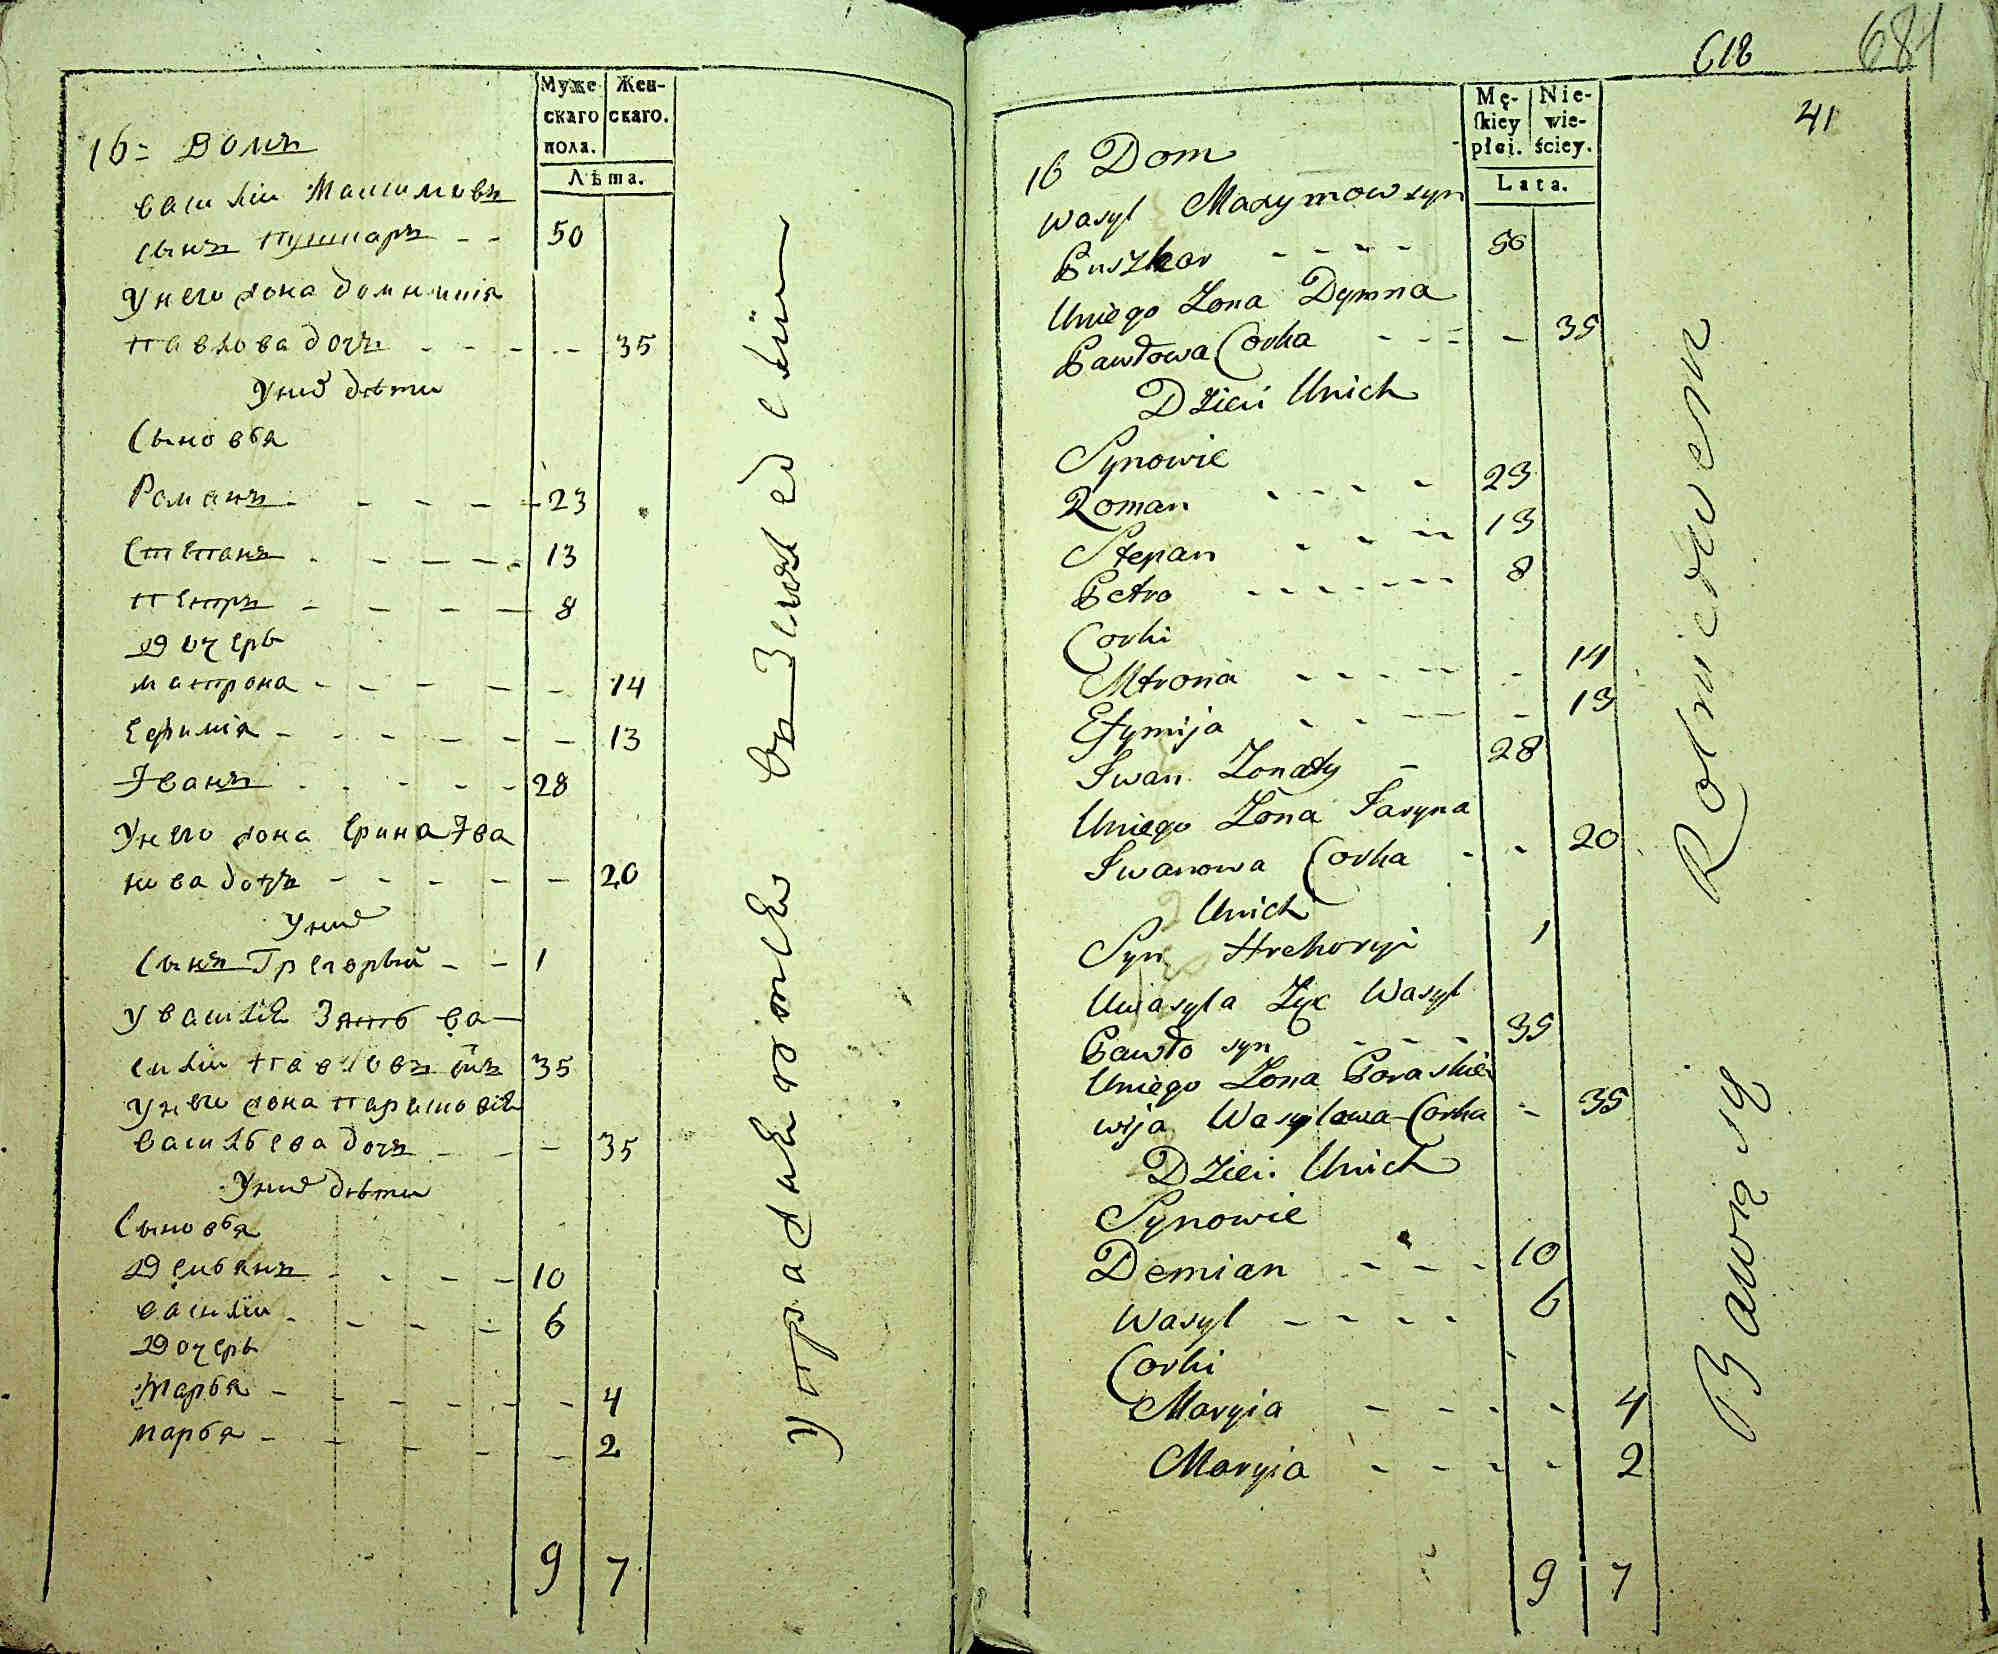 Муже
скаго
пола.
Жен-
скаго.
Лѣта.
16= Домъ
василiи Максимовъ
сынъ пушкаръ - - 50
У него жона домникия
павлова дочъ - - - - - 35
У них дѣти
Сыновья
Романъ - - - - - 23
Степанъ - - - - - 13
петръ - - - - 8
Дочерь
матрона - - - - - 14
Ефимiя - - - - - - 13
Иванъ - - - - - 28
У него жона Ерина Ива
нова дочъ - - - - - 20
У них
Сынъ Григорый - - 1
У василiя Зять ва
силiи павловъ сiнъ 35
У него жона парасковiя
васильева дочъ - - - 35
У них дѣти
Сыновья
Демьянъ - - - - 10
василiи - - - - - 6
Дочерь
Марья - - - - - - 4
марья - - - - - 2
9 7
упражняютсЯ въ Земледелiи
618
681
41
Mę-
skiey
płci.
Nie-
wie-
ściey.
Lata.
16 Dom
Wasyl Maxymow syn
Puszkar - - - - 50
Uniego Żona Dymna
Pawłowa Corka - - - - 35
Dzieci Unich
Synowie
Roman - - - - 23
Stepan - - - - 13
Petro - - - - - - 8
Corki
Mtrona - - - - - 14
Efymija - - - - - 13
Iwan Żonaty - 28
Uniego Żona Jaryna
Iwanowa Corka - - 20
Unich
Syn Hrehoryi 1
Uwasyla Zęc Wasyl
Pawło syn - - - - 35
Uniego Żona Paraskie
wija Wasylowa Corka - 35
Dzieci Unich
Synowie
Demian - - - - 10
Wasyl - - - - 6
Corki
Maryia - - - - 4
Maryia - - - - 2
9 7
Bawią się Rolnictwem